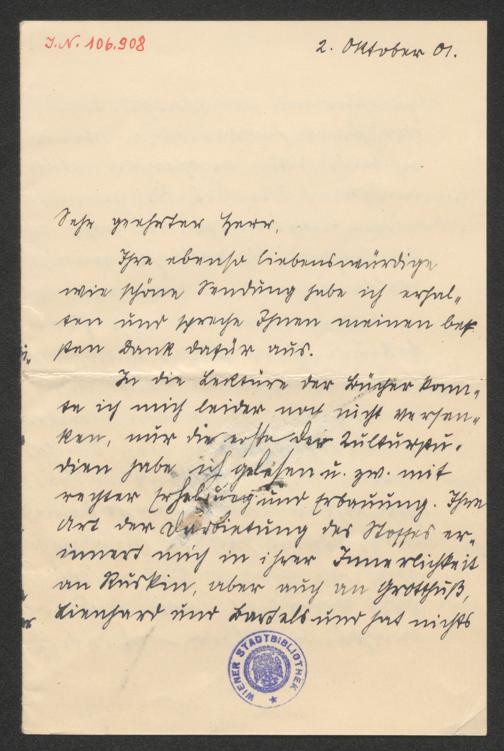 J.N. 106.908
2. Oktober 01.
Sehr geehrter Herr,
Ihre ebenso liebenswürdige
wie schöne Sendung habe ich erhal-
ten und spreche Ihnen meinen bes
ten Dank dafür aus.
In die Lektüre der Bücher konn-
te ich mich leider noch nicht versen-
ken, nur die erste der Kulturstu-
dien habe ich gelesen u. zw. mit
rechter Erhebung und Erbauung. Ihre
Art der Darbietung des Stoffes er-
innert mich in ihrer Innerlichkeit
an Ruskin, aber auch an Grotthuß,
Lienhard und Bartels und hat nichts
WIENER STADTBIBLIOTHEK